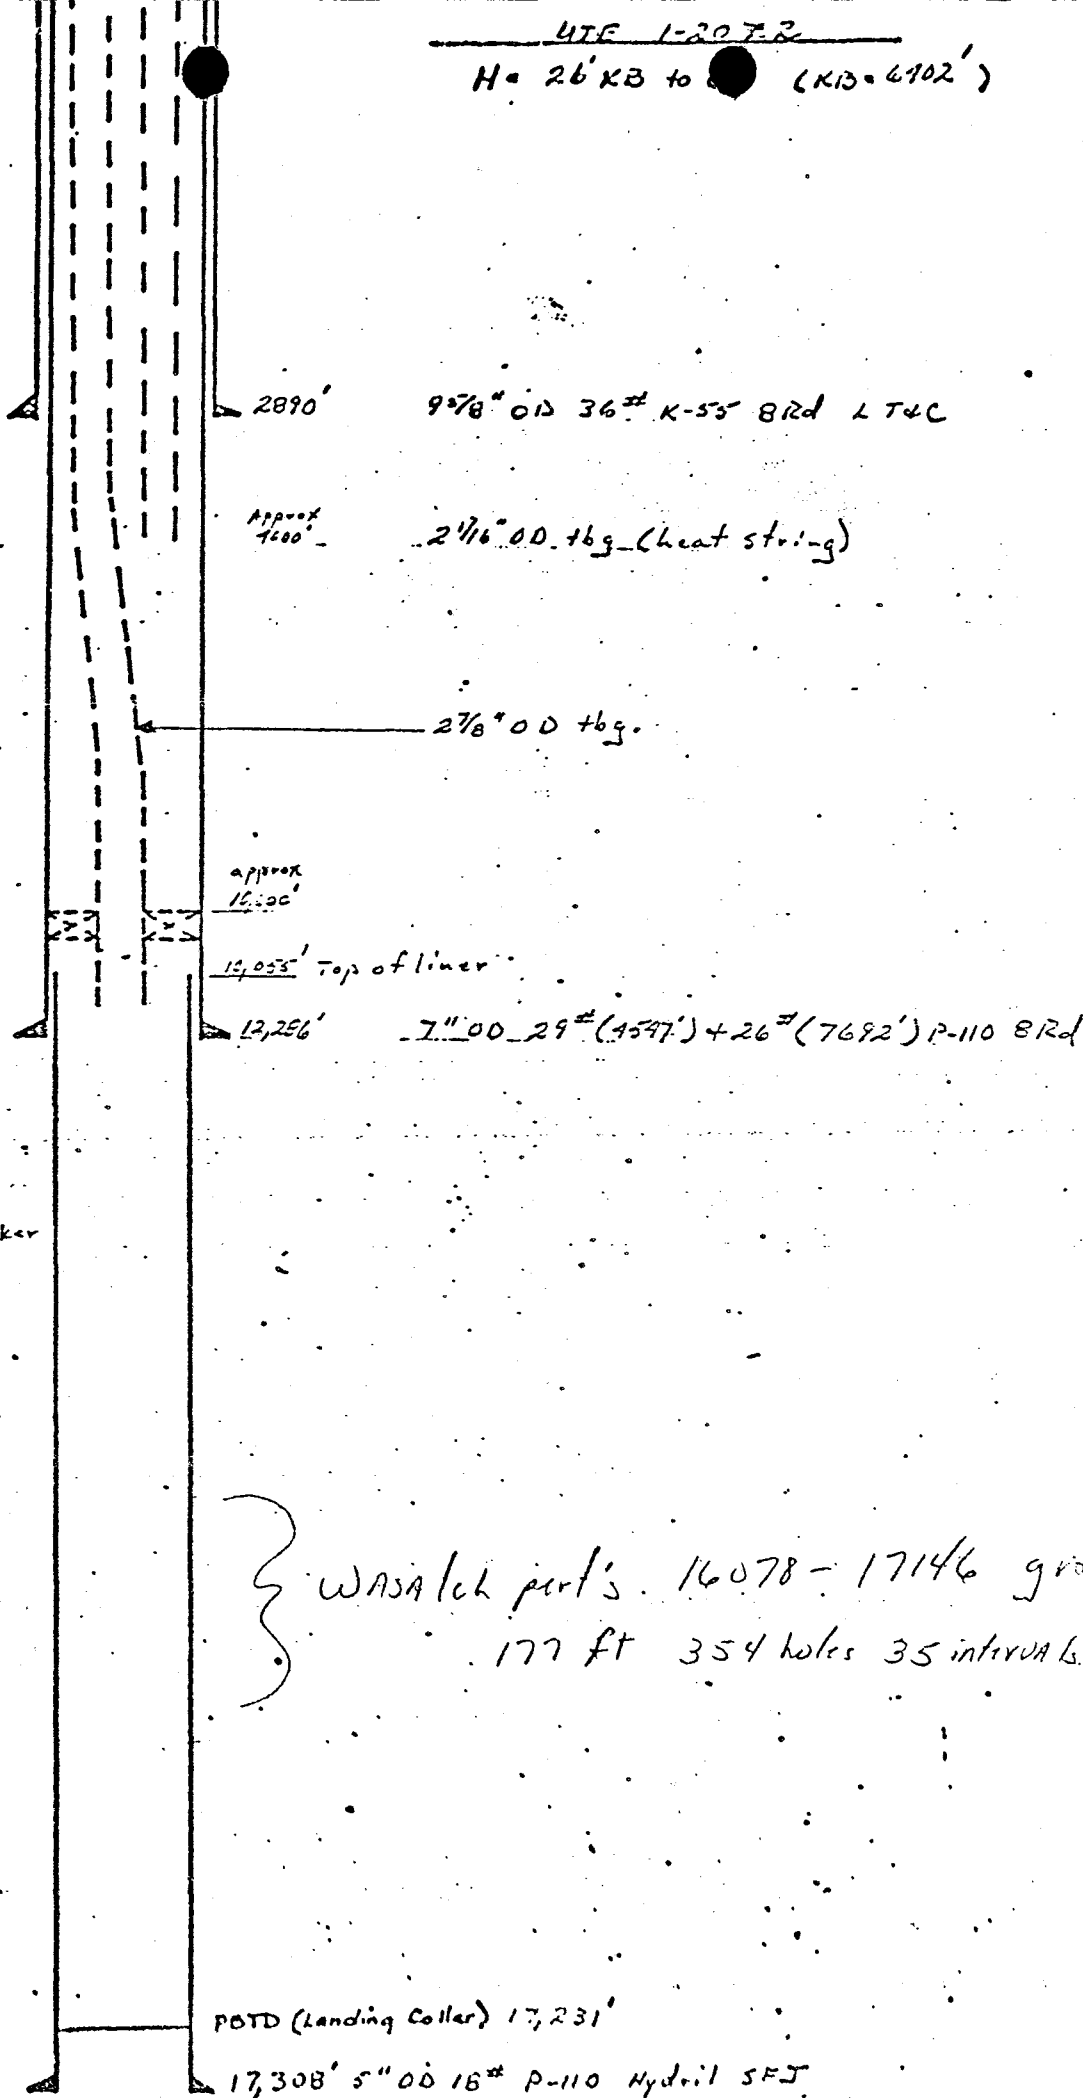 UTE 1-20Z2
H= 26' KB to (KB=6902')
2890' 9 5/8" OD 36# K-55 8Rd LT&C
Approx
2 1/16" OD tbg (heat string)
2 7/8" OD tbg.
approx
Top of liner
7" OD 29# (4547') + 26# (7692') P-110 8Rd
ker
Wasatch perf's. 16078 - 17146 gro
177 ft 354 holes 35 intervals.
PBTD (Landing Collar) 17,231'
17,308' 5" OD 18# P-110 Hydril SFJ